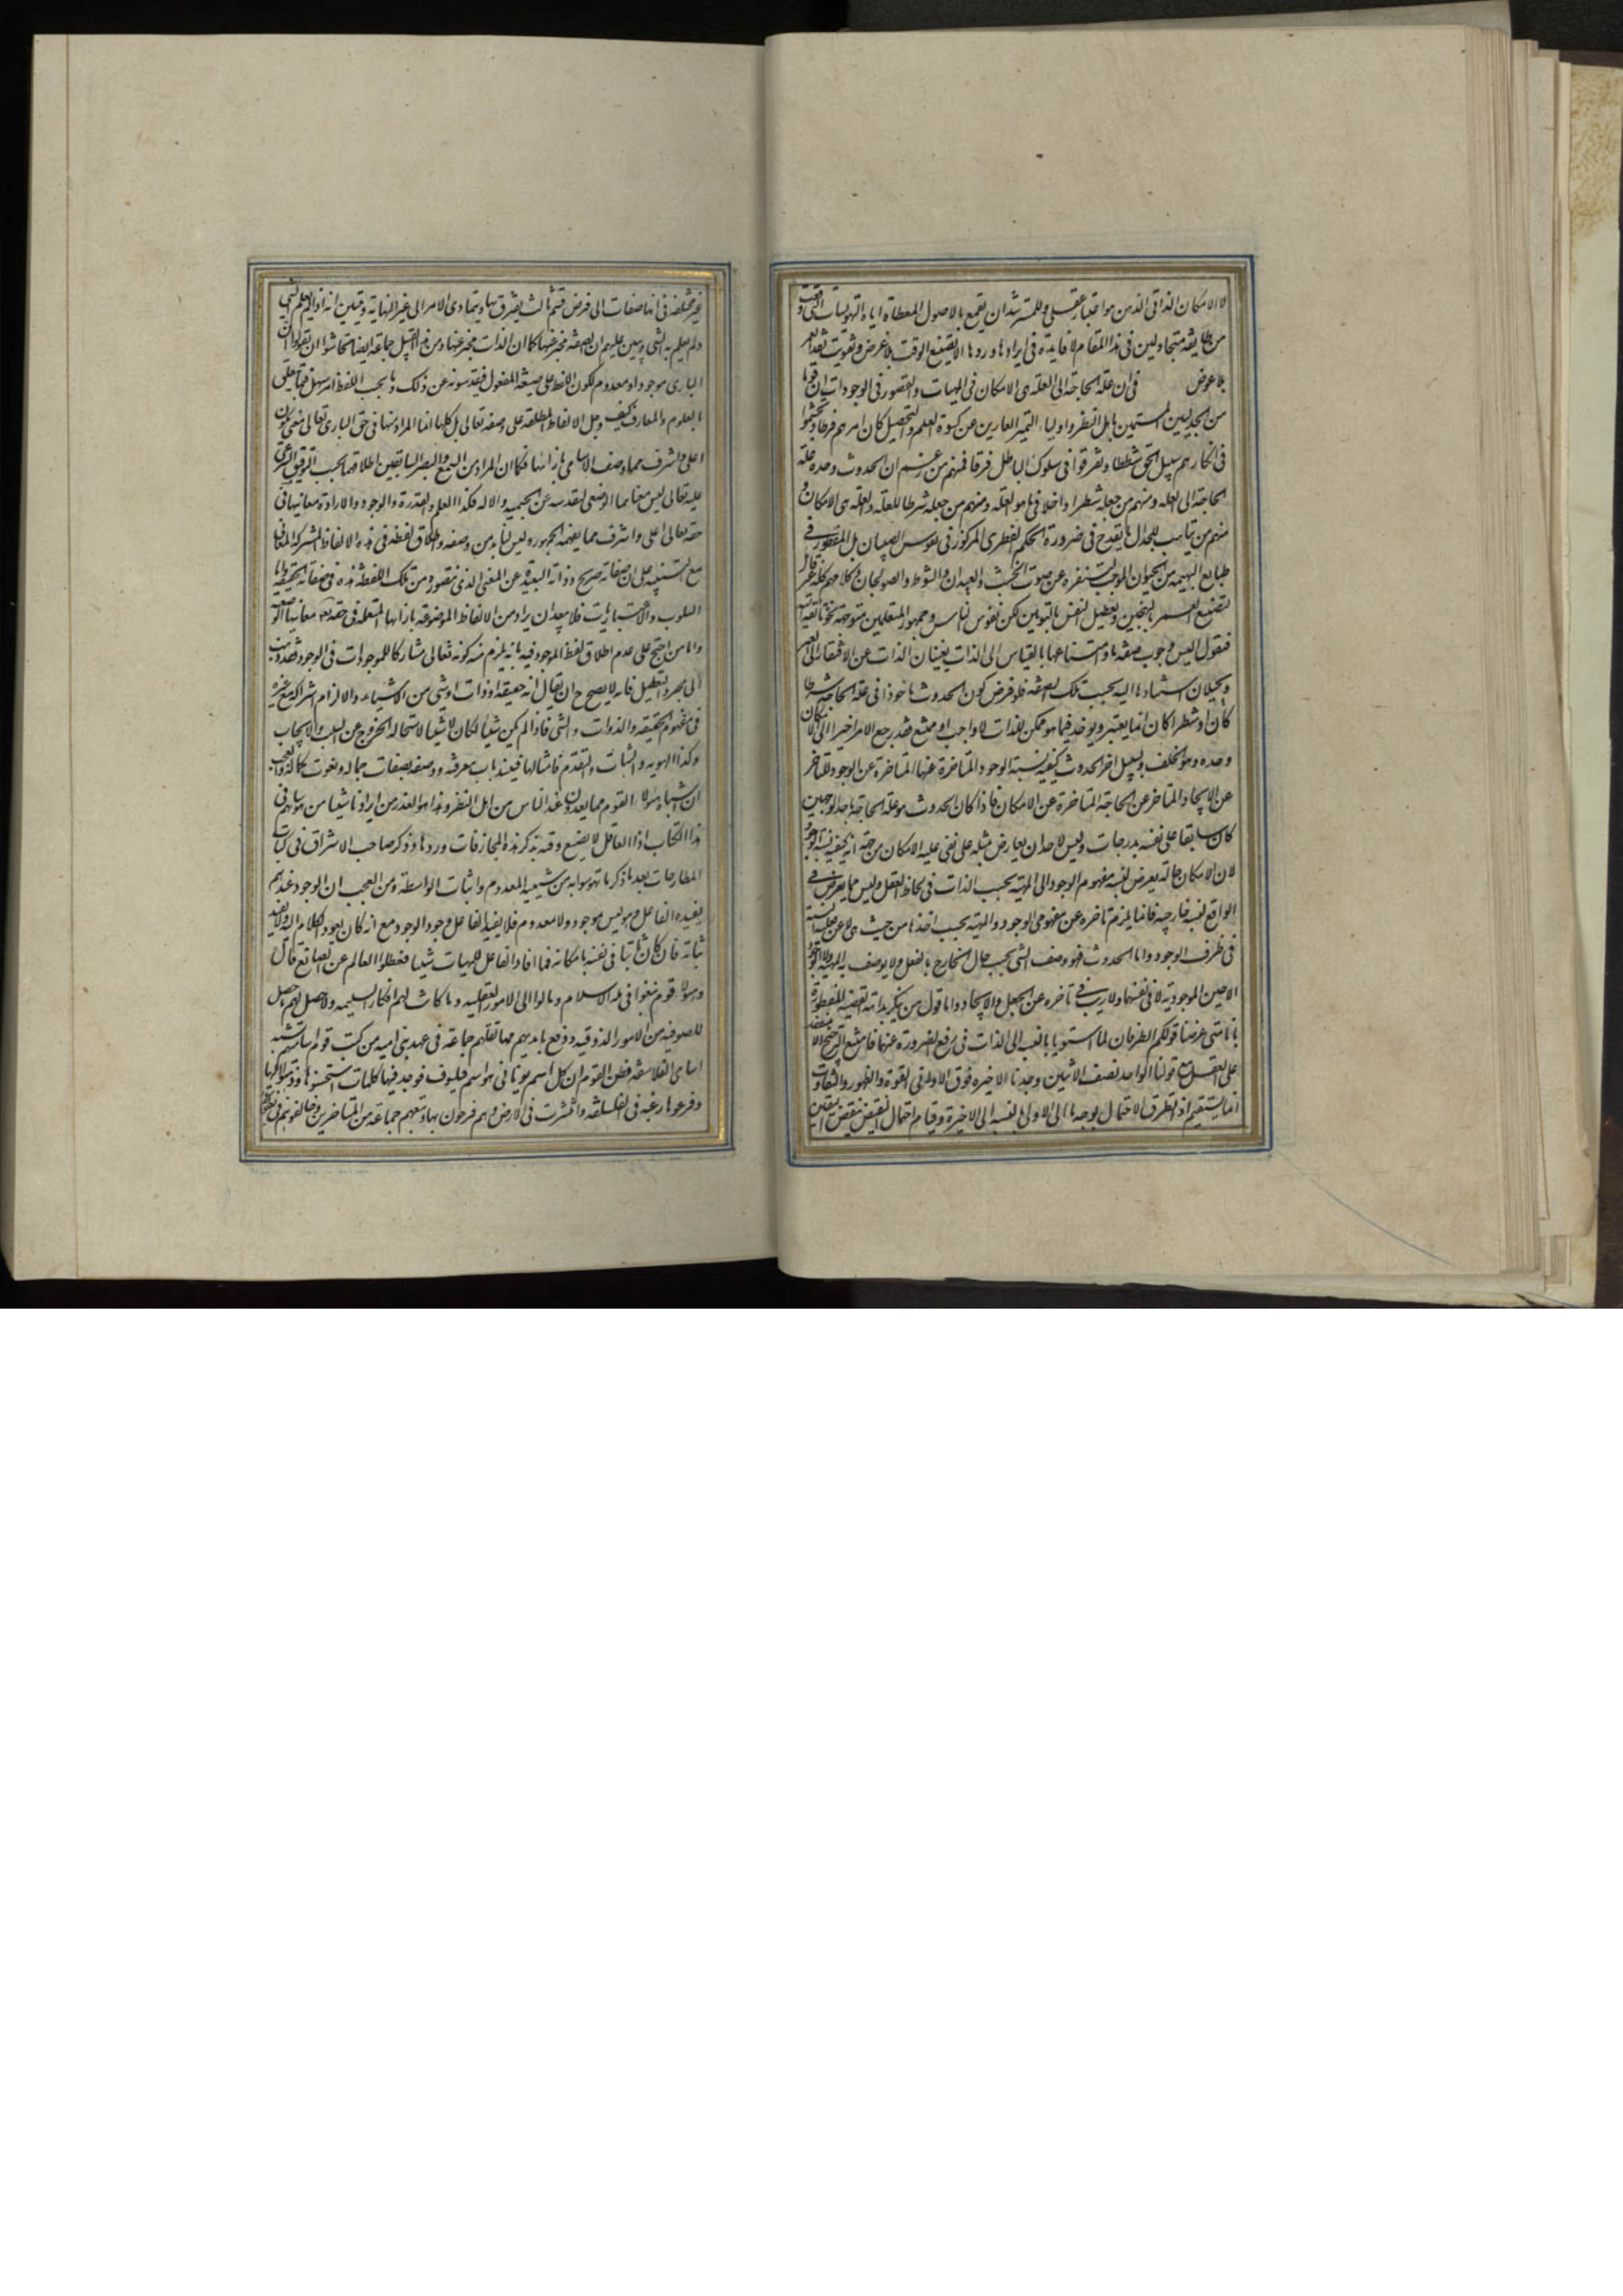 لا الامكان الذاتى الذى هو اعتبار عقلى وللمسترشد ان يقمع بالاصول المعطاة اياه التهويسات التى وقعت
من طايفة متجادلين فى هذا المقام لا فايدة فى ايرادها وردها الا تضييع الوقت بلا غرض وتفويت نقد العمر
بلا عوض فى ان علة الحاجة الى العلة هى الامكان فى المهيات والقصور فى الوجودات ان قوما
من الجدليين المتسمين باهل النظر واولياء التميز العارين عن كسوة العلم والتحصيل كان امرهم فرطا وتجشموا
فى انكارهم سبيل الحق شططا وتفرقوا فى سلوك الباطل فرقا فمنهم من زعم ان الحدوث وحده علة
الحاجة الى العلة ومنهم من جعله شطرا داخلا فيما هو العلة ومنهم من جعله شرطا للعلة والعلة هى الامكان و
منهم من يتاهب للجدال بالقدح فى ضرورة الحكم الفطرى المركوز فى نفوس الصبيان بل المفطور فى
طبايع البهيمة من الحيوان الموجب لتنفره عن صوت الخشب والعيدان والسوط والصولجان وكلامهم كله غير قابل
لتضييع العمر بالتهجين وتعطيل النفس بالتوهين لكن نفوس الناس وجمهور المتعلمين متوجهة نحوه تائقة اليه
فنقول اليس وجوب صفة ما وامتناعها بالقياس الى الذات يغنيان الذات عن الافتقار الى الغير
ويحيلان استنادها اليه بحسب تلك الصفة فلو فرض كون الحدوث ماخوذا فى علة الحاجة شرطا
كان او شطرا كان انما يعتبر ويؤخذ فيما هو ممكن للذات لا واجب او ممتنع فقد رجع الامر اخيرا الى الامكان
وحده وهو الخلف وبسبيل اخر الحدوث كيفية نسبة الوجود المتاخرة عنها المتاخرة عن الوجود المتاخر
عن الايجاد المتاخر عن الحاجة المتاخرة عن الامكان فاذا كان الحدوث هو علة الحاجة باحد الوجهين
كان سابقا على نفسه بدرجات وليس لاحد ان يعارض بمثله على نفى علية الامكان من جهة انه كيفية نسبة الوجود
لان الامكان حالة يعرض لنسبة مفهوم الوجود الى المهية بحسب الذات فى لحاظ العقل وليس مما يعرض فى
الواقع لنسبة خارجية فانما يلزم تاخره عن مفهومى الوجود والمهية بحسب اخذها من حيث هى لا عن فعلية النسبة
فى ظرف الوجود واما الحدوث فهو وصف الشى بحسب حال الخارج بالفعل ولا يوصف به المهية ولا الوجود
الا حين الموجودية لا فى نفسها ولا ريب فى تاخره عن الجعل والايجاد واما قول من ينكر بداهة القضية المفطورة
بانا متى عرضنا قولكم الطرفان لما استويا بالنسبة الى الذات فى رفع الضرورة عنهما فامتنع الترجيح الا بمنفصل
على العقل مع قولنا الواحد نصف الاثنين وجدنا الاخيرة فوق الاولى فى القوة والظهور والتفاوت
انما يستقيم اذا تطرق الاحتمال بوجه ما الى الاولى بالنسبة الى الاخيرة وقيام احتمال النقيض ينقض اليقين
غير مختلفة فى انها صفات الى فرض قسم ثالث يفترق بها ويتمادى الامر الى غير النهاية وتبين انه اذا لم يعلم الشى
ولم يعلم به الشى وتبين عليهم ان الصفة مخبر عنها كما ان الذات مخبر عنها ومن هذا القبيل جماعة ايضا تحاشوا ان يقولوا ان
البارى موجود او معدوم لكون اللفظ على صيغة المفعول فيقدسونه عن ذلك وما بحسب اللفظ امره سهل فيما يتعلق
بالعلوم والمعارف كيف وجل الالفاظ المطلقة على وصفه تعالى بل كلها انما المراد منها فى حق البارى تعالى معنى يكون
اعلى واشرف مما وضف الاسامى بازائها فكما ان المراد من السمع والبصر السابقين اطلاقهما بحسب التوقيف الشرعى
عليه تعالى ليس معناهما الوضعى لتقدسه عن الجسمية والالة فكذا العلم والقدرة والوجود والارادة معانيها فى
حقه تعالى اعلى واشرف مما يفهمه الجمهور وليس لنا بد من وصفه واطلاق لفظه فى هذه الالفاظ المشتركة المعانى
مع التنبيه على ان صفاته صريح ذواته البعيدة عن المعنى الذى نتصوره من تلك اللفظة هذه فى صفاته الحقيقية واما
السلوب والاضافات فلا يبعد ان يراد من الالفاظ الموضوعة بازائها المستعملة فى حقه تعالى معانيها الوضعية
واما من احتج على عدم اطلاق لفظ الموجود فيه بانه يلزم منه كونه تعالى مشاركا للموجودات فى الوجود فقد ذهب
الى مجرد التعطيل فانه لا يصح ح ان يقال انه حقيقة او ذات او شى من الاشياء والا لزم اشتراكه مع غيره
فى مفهوم الحقيقة والذوات والشى فاذا لم يكن شيئا لكان لا شيئا لاستحالة الخروج عن السلب والايجاب
وكذا الهوية والثبات والتقدم وامثالها فينسد باب معرفته ووصفه بصفات جماله ونعوت كماله والعجب
ان اشباه هؤلاء القوم مما يعدون عند الناس من اهل النظر وهذا هو العذر من ايرادنا شيئا من هوساتهم فى
هذا الكتاب اذ العاقل لا يضيع وقته بذكر هذه المجازفات وردها وذكر صاحب الاشراق فى كتاب
المطارحات بعد ما ذكر ما تهوسوا به من شيئية المعدوم واثبات الواسطة ومن العجب ان الوجود عندهم
يفيده الفاعل وهو ليس بموجود ولا معدوم فلا يفيد الفاعل وجود الوجود مع انه كان يعود الكلام اليه ولا يفيد
ثباته فانه كان ثابتا فى نفسه بامكانه فما افاد الفاعل للمهيات شيئا فعطلوا العالم عن الصانع قال
وهؤلاء قوم نبغوا فى ملة الاسلام ومالوا الى الامور العقلية وما كانت لهم افكار سليمة ولا حصل لهم ما حصل
للصوفية من الامور الذوقية ووقع بايديهم مما نقلهم جماعة فى عهد بنى امية من كتب قوم اساميهم تشبه
اسامى الفلاسفة فظن القوم ان كل اسم يونانى هو اسم فيلسوف فوجد فيها كلمات استحسنوها وذهبوا اليها
وفرعوها رغبة فى الفلسفة وانتشرت فى الارض وهم فرحون بها وتبعهم جماعة من المتاخرين وخالفوهم فى بعض